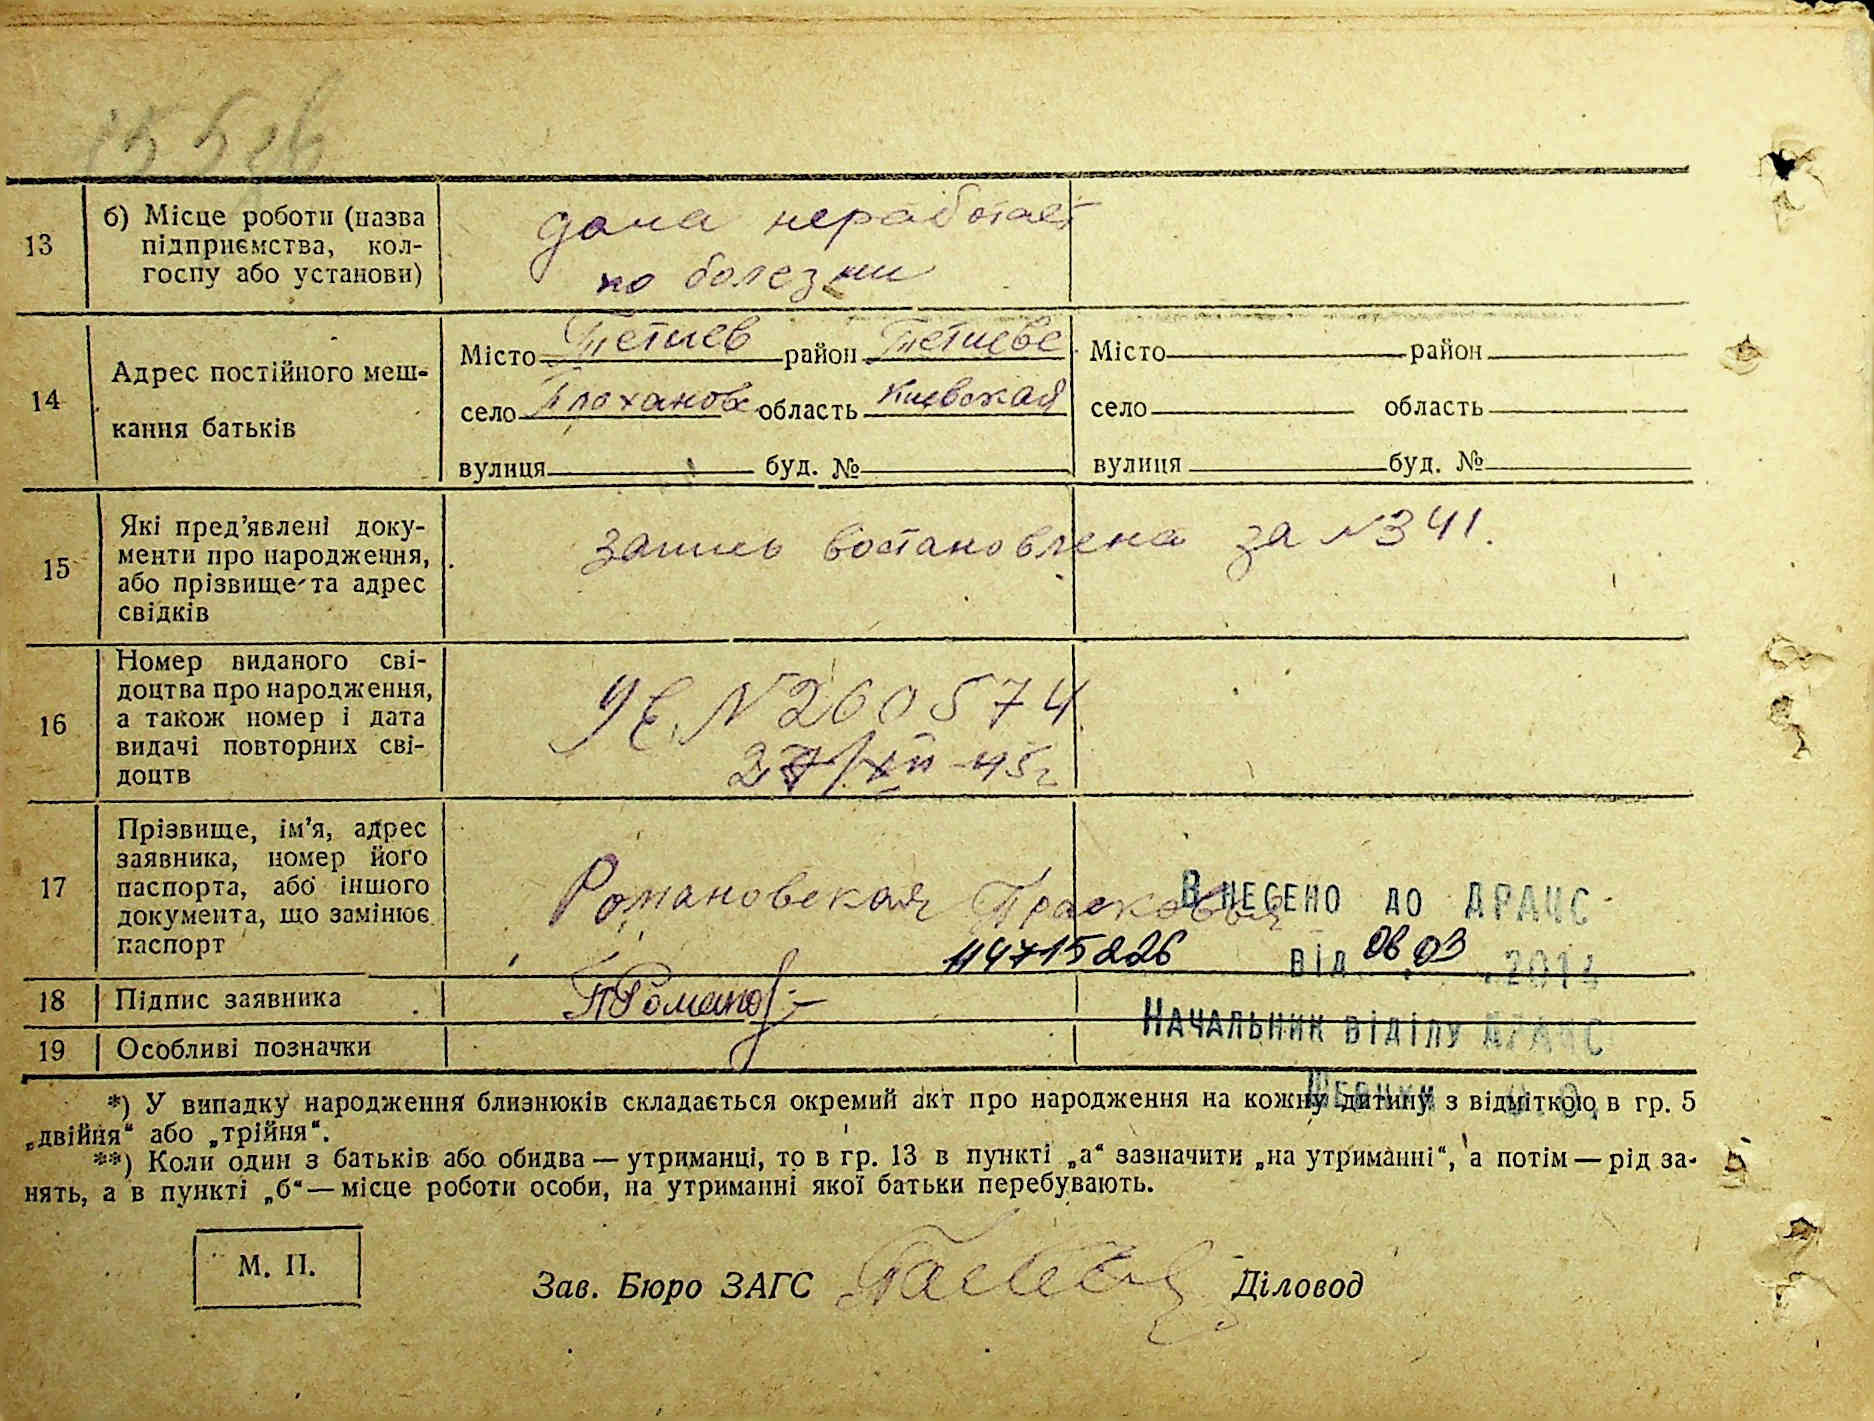 13
б) Місце роботи (назва
підприємства, кол-
госпу або установи)
дома неработает
по болезни
14
Адрес постійного меш-
кання батьків
Місто Тетиев район Тетиевс
село область Киевская
вулиця буд. №
Місто район
село область
вулиця буд. №
15
Які пред’явлені доку-
менти про народження,
або прізвище та адрес
свідків
запись востановлена за №341.
16
Номер виданого сві-
доцтва про народження,
а також номер і дата
видачі повторних сві-
доцтв
№260574
27/XII-45г
17
Прізвище, ім’я, адрес
заявника, номер його
паспорта, або іншого
документа, що замінює
паспорт
Романовская Прасковья
Внесено до ДРАЦС
114715226
від 06.03.2014
18
Підпис заявника
ПРоманов
Начальник відділу ДРАЦС
19
Особливі позначки
*) У випадку народження близнюків складається окремий акт про народження на кожну дитину з відміткою в гр. 5
„двійня“ або „трійня“.
**) Коли один з батьків або обидва — утриманці, то в гр. 13 в пункті „а“ зазначити „на утриманні“, а потім — рід за-
нять, а в пункті „б“ — місце роботи особи, на утриманні якої батьки перебувають.
М. П.
Зав. Бюро ЗАГС Діловод